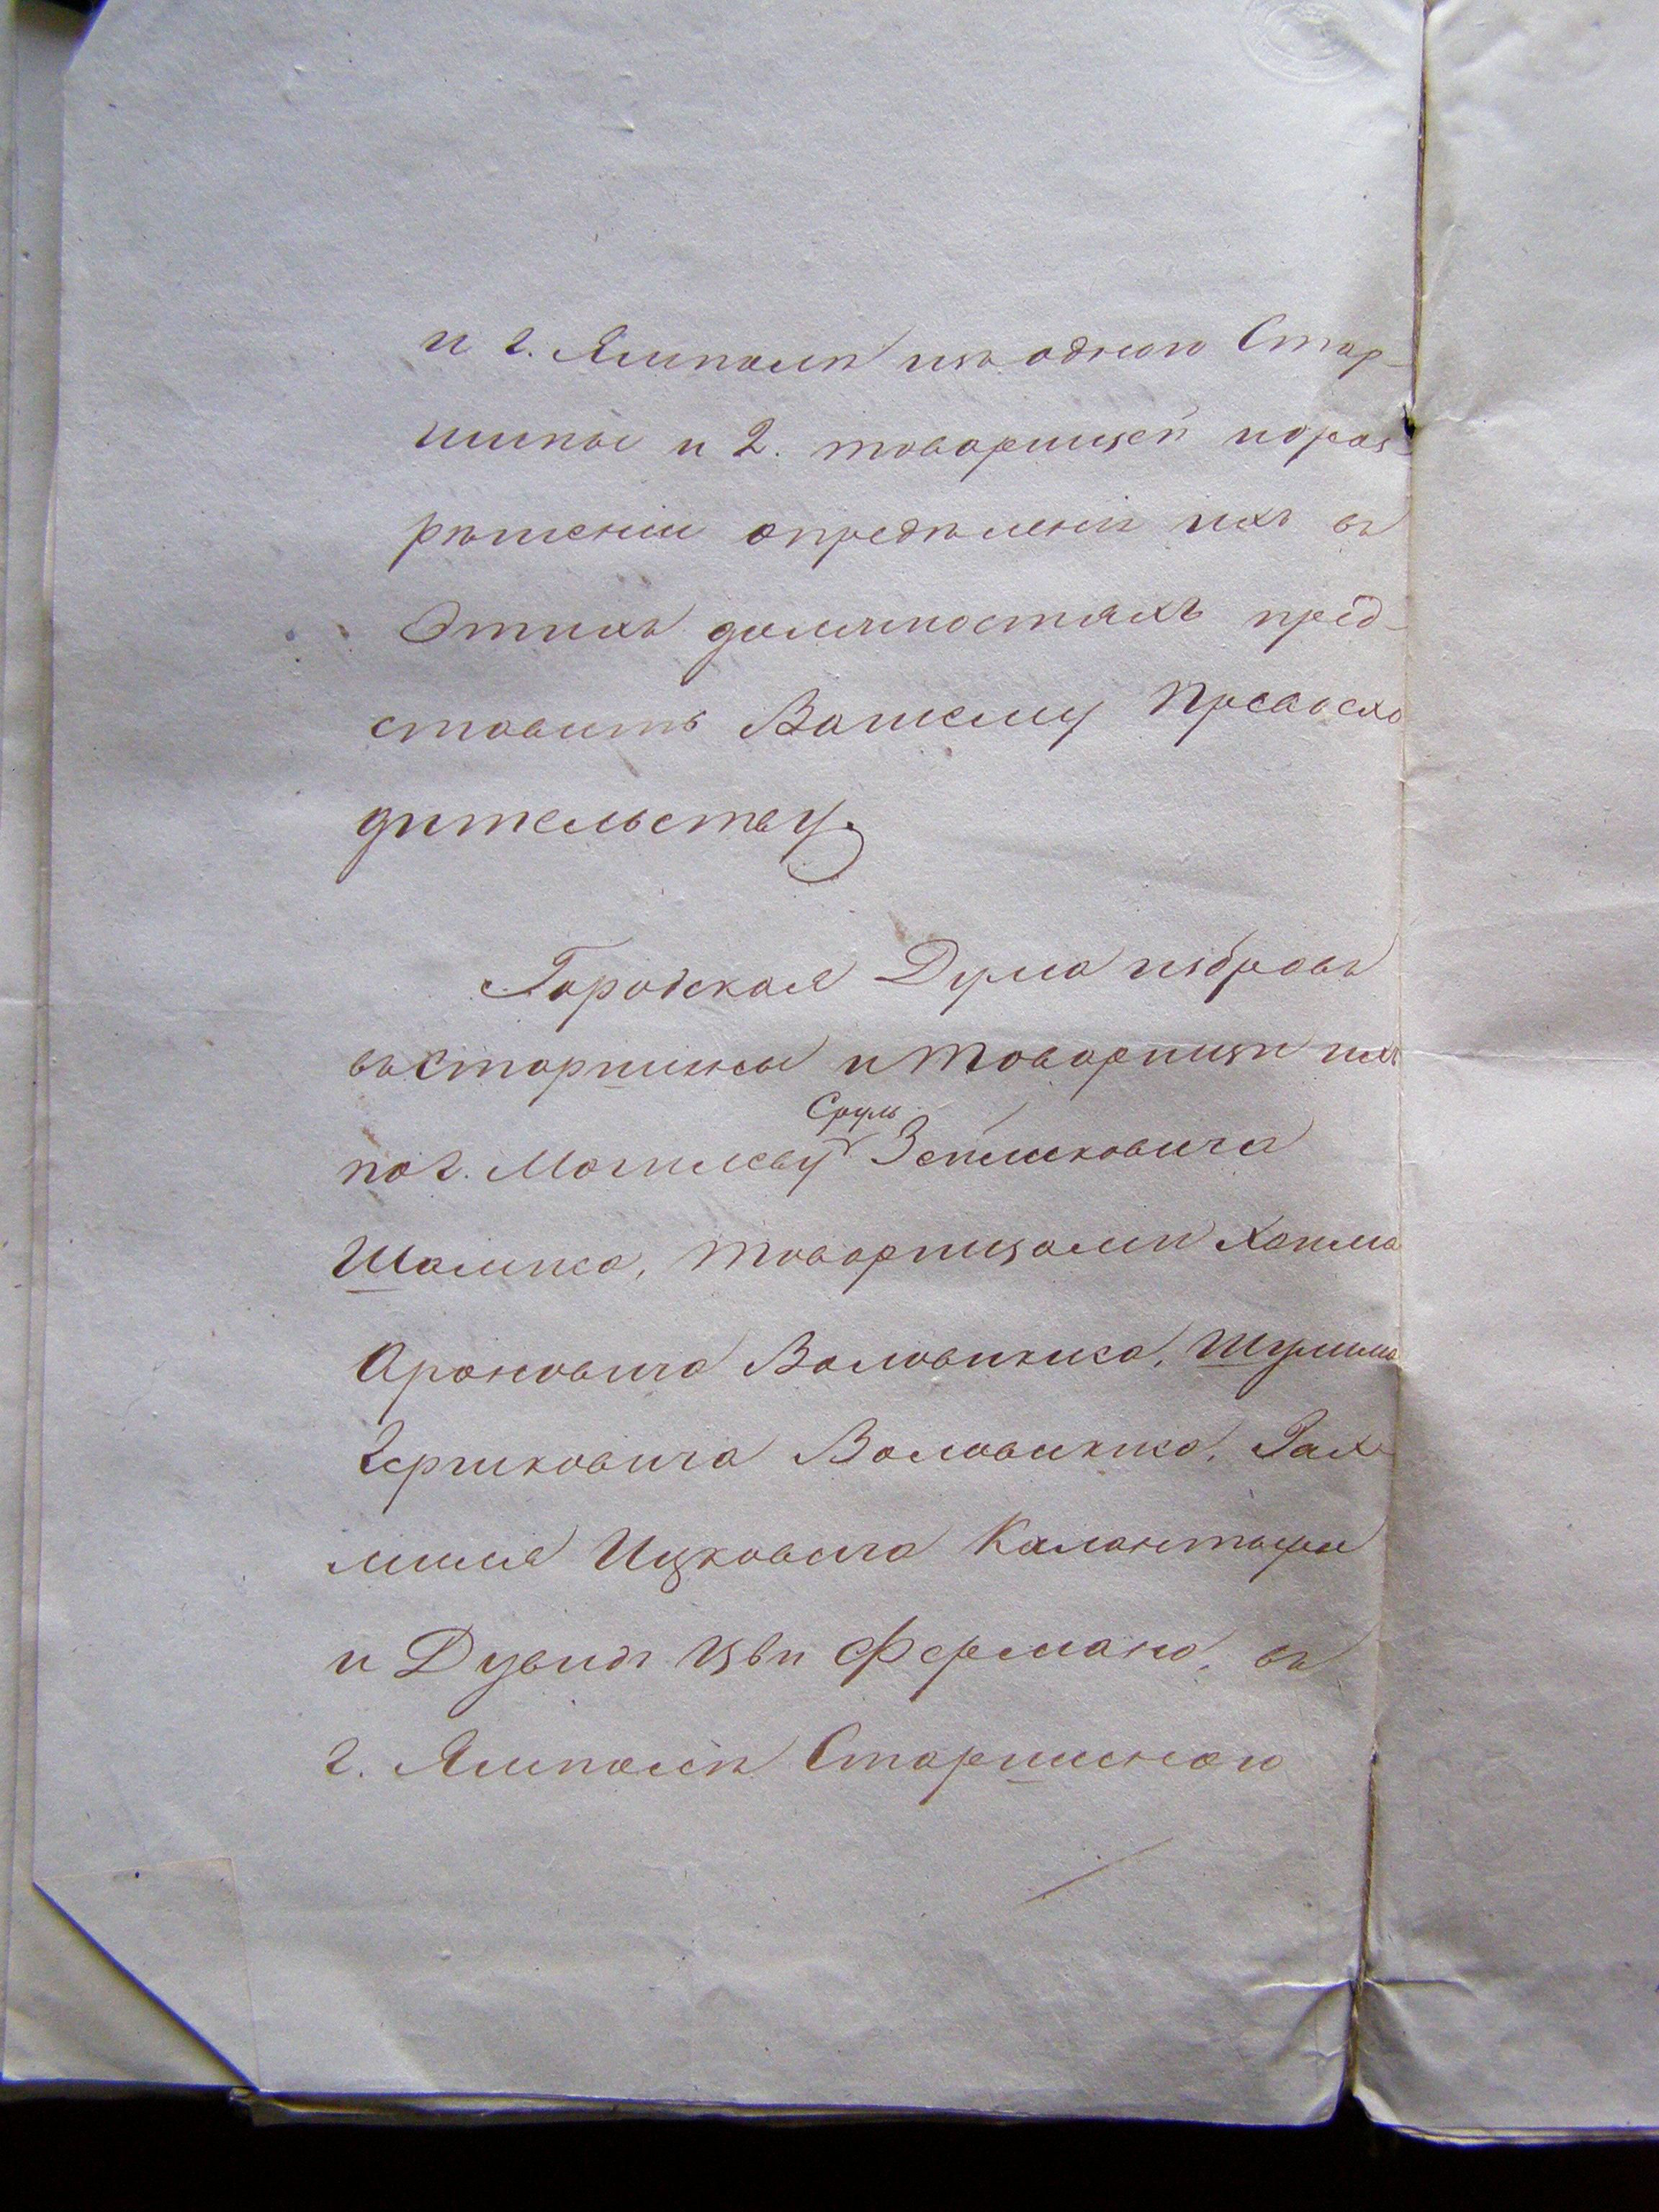 и г. Ямполѣ изъ одного Стар-
шины и 2. товарищей и о раз-
рѣшеніи опредѣленія ихъ въ
этихъ должностяхъ пред-
ставить Вашему Превосхо
дительству.
Городская Дума избравъ
въ Старшины и товарищи ихъ
по г. Могилеву Сруль Зейликовича
Шамиса, товарищами Хаима
Ароновича Воловника, Шулима
Гершковича Воловника, Рах-
миля Ицковича Калантыря
и Дувидъ Цви Фермана, въ
г. Ямполѣ Старшиною